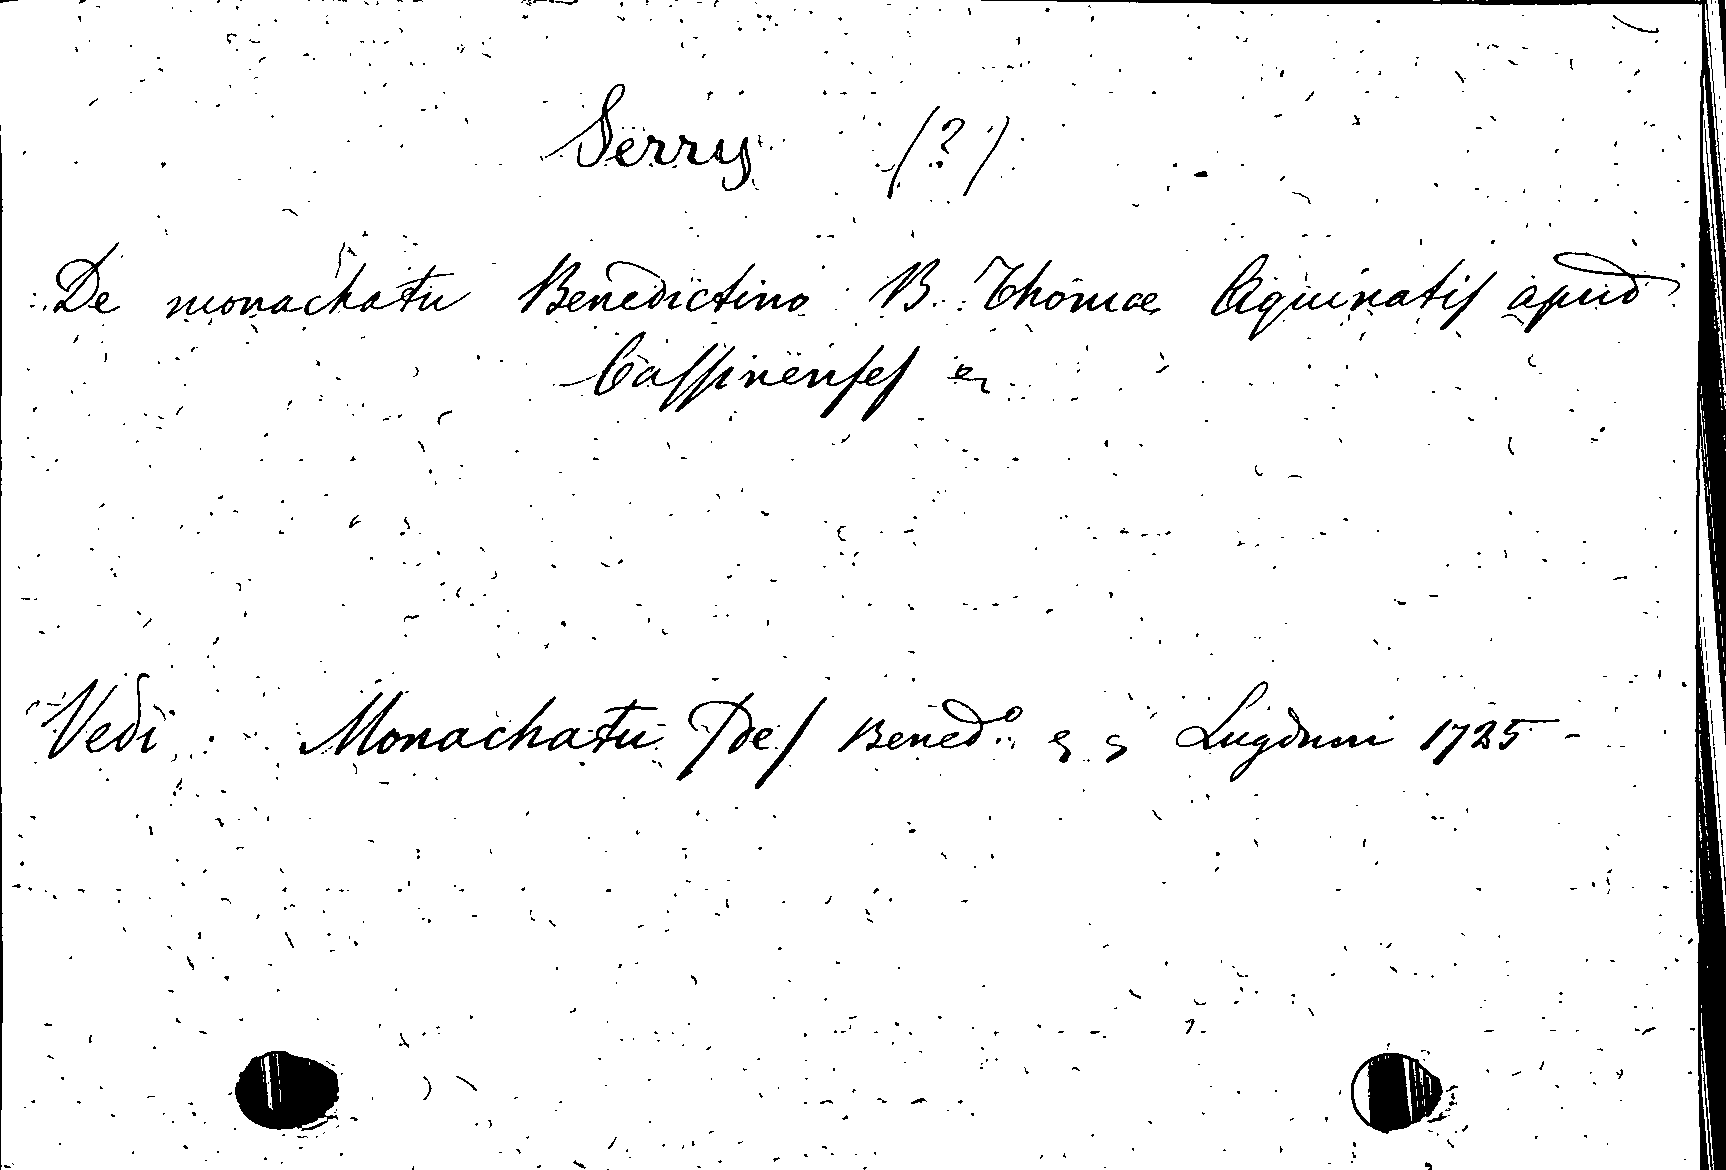 Serry (?)
De monachatu Benedictino B. Thomæ Aquinatis apud
Cassinenses &
Vedi Monachatu (De) Bened.º & & Lugduni 1725 -